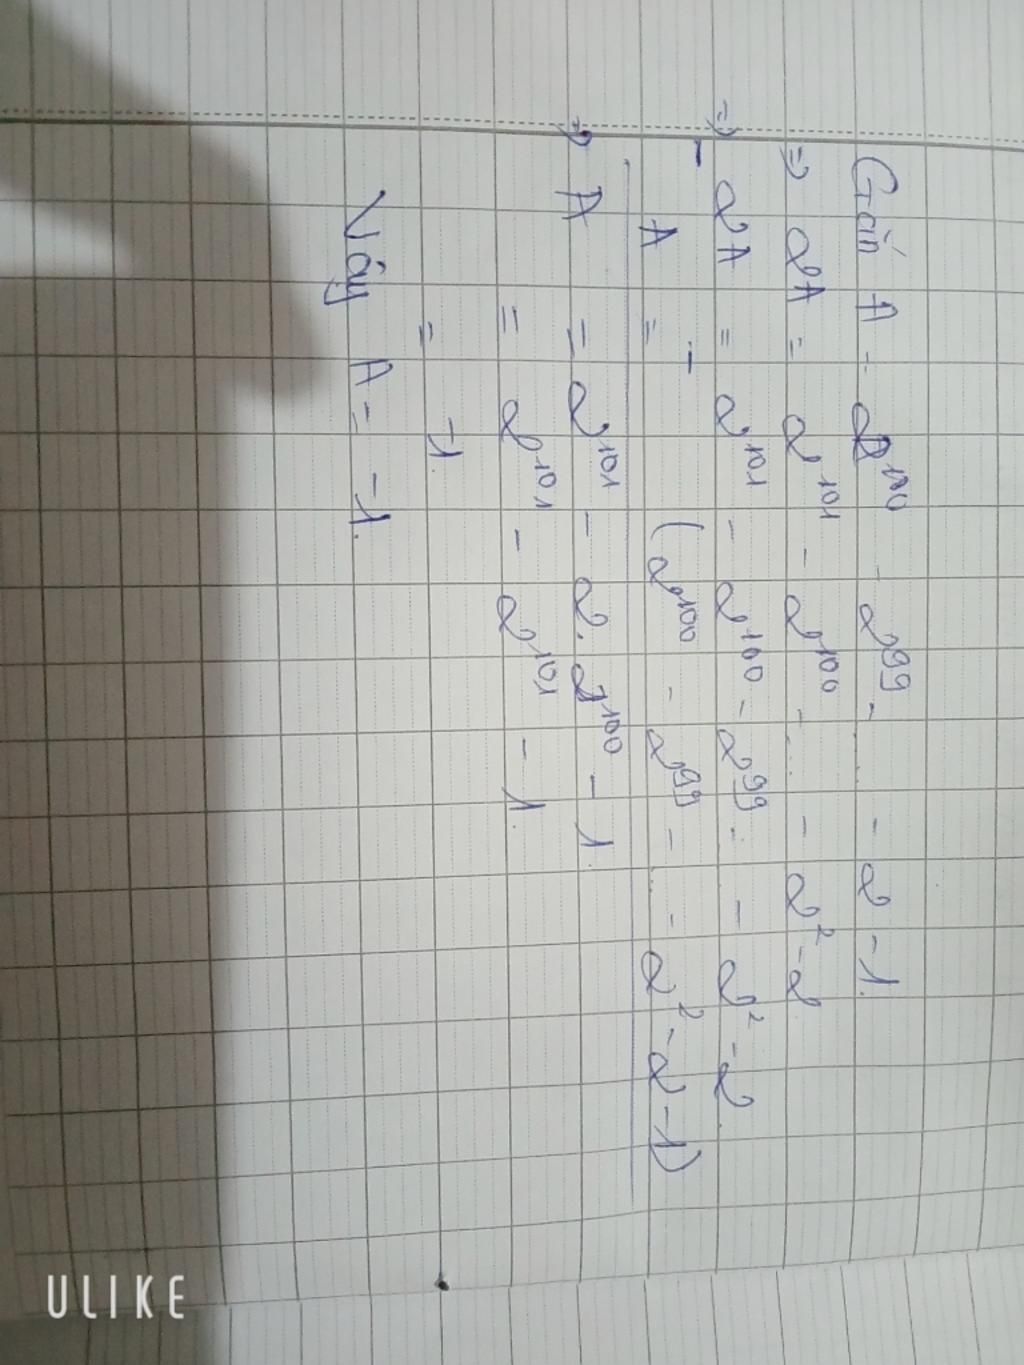 Gán A = 2¹⁰⁰ - 2⁹⁹ - ... - 2 - 1.
=> 2A = 2¹⁰¹ - 2¹⁰⁰ - ... - 2² - 2
=> 2A = 2¹⁰¹ - 2¹⁰⁰ - 2⁹⁹ - ... - 2² - 2
- A = - (2¹⁰⁰ - 2⁹⁹ - ... - 2² - 2 - 1)
=> A = 2¹⁰¹ - 2.2¹⁰⁰ - 1.
= 2¹⁰¹ - 2¹⁰¹ - 1.
= -1.
Vậy A = -1.
ULIKE